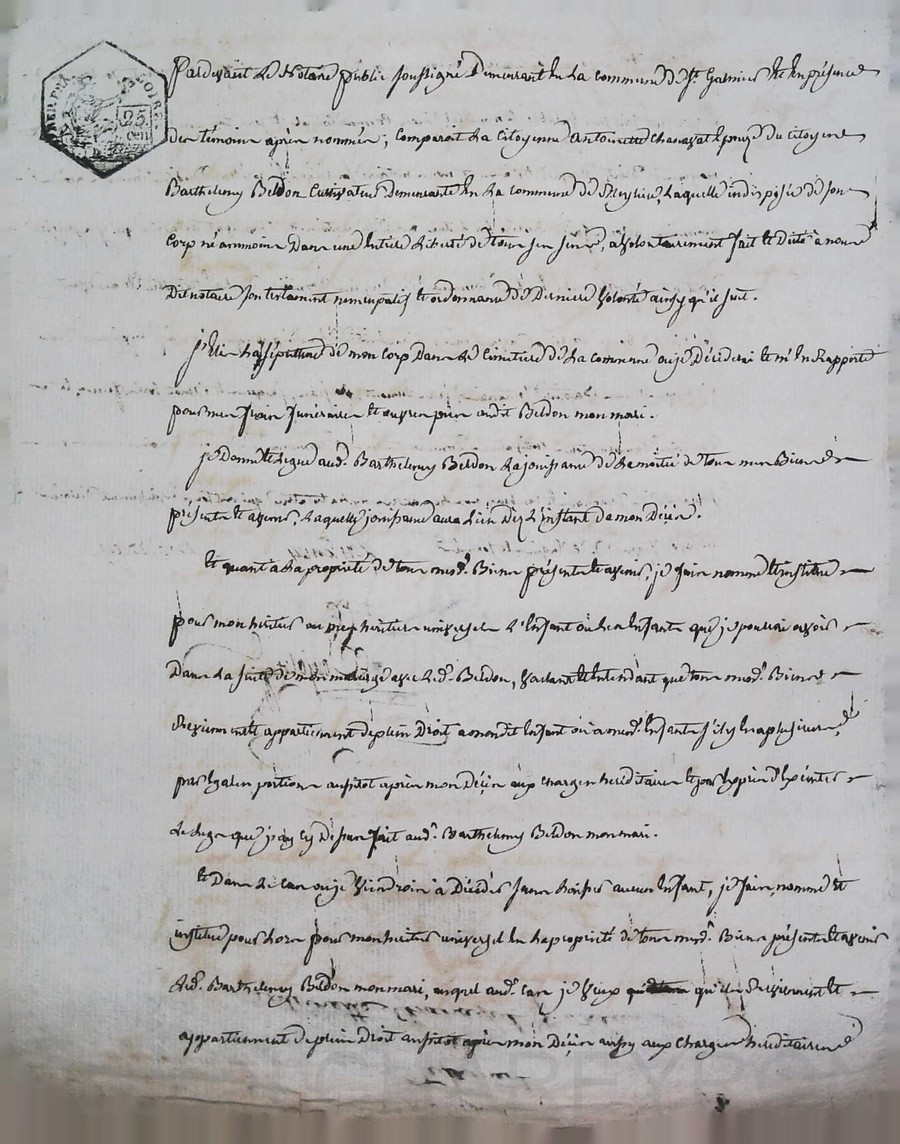 25
cen
Pardevant Le Notaire public soussigné Demeurant En La commune de St. Galmier Et En présence
des témoins après nommés, comparoit La Citoyenne antoinette Epouze du Citoyen
Barthelemy Beldon Cultivateur Demeurante En La commune de Laquelle indisposée de son
Corp néammoins Dans une Entiere Liberté de tous ses sens, a volontairement fait Et Dicté à nous
Dit notaire son testament nuncupatif Et ordonnance de Derniere volonté ainsy qu'il suit.
j'Elis La sépulture de mon Corp Dans Le Cimetiere de La commune ou je Décéderai Et m'En Rapporte
pour mes frais funéraires Et œuvres pies audit Beldon mon mari.
je Donne Et Legue aud. Barthelemy Beldon La jouissance de La moitié de tous mes Biens
présents Et avenir, Laquelle jouissance aura Lieu Dez L'instant de mon Décès.
Et quant a La propriété de tous mesd. Biens présents Et avenir, je fais nomme Et institue
pour mon heritier ou mes heritiers universels L'Enfant ou Les Enfants que je pourrai avoir
Dans La suite de mon mariage avec Led. Beldon, voulant Et Entendant que tous mesd. Biens
Reviennent Et appartiennent de plein Droit a mondit Enfant ou a mesd. Enfants s'il y En a plusieurs,
par Egales portions aussitot après mon Décès aux charges hereditaires Et par Exprès D'Exécuter
Le Legs que j'ay cy Dessus fait aud. Barthelemy Beldon mon mari.
Et Dans Le Cas ou je viendrois à Décéder sans Laisser aucun Enfant, je fais, nomme Et
institue pour Lors pour mon heritier universel En La propriété de tous mesd. Biens présents Et avenir
Led. Barthelemy Beldon mon mari, auquel aud. Cas je veux qu'ils Reviennent Et
appartiennent de plein Droit aussitot après mon Décès ainsy aux Charges hereditaires